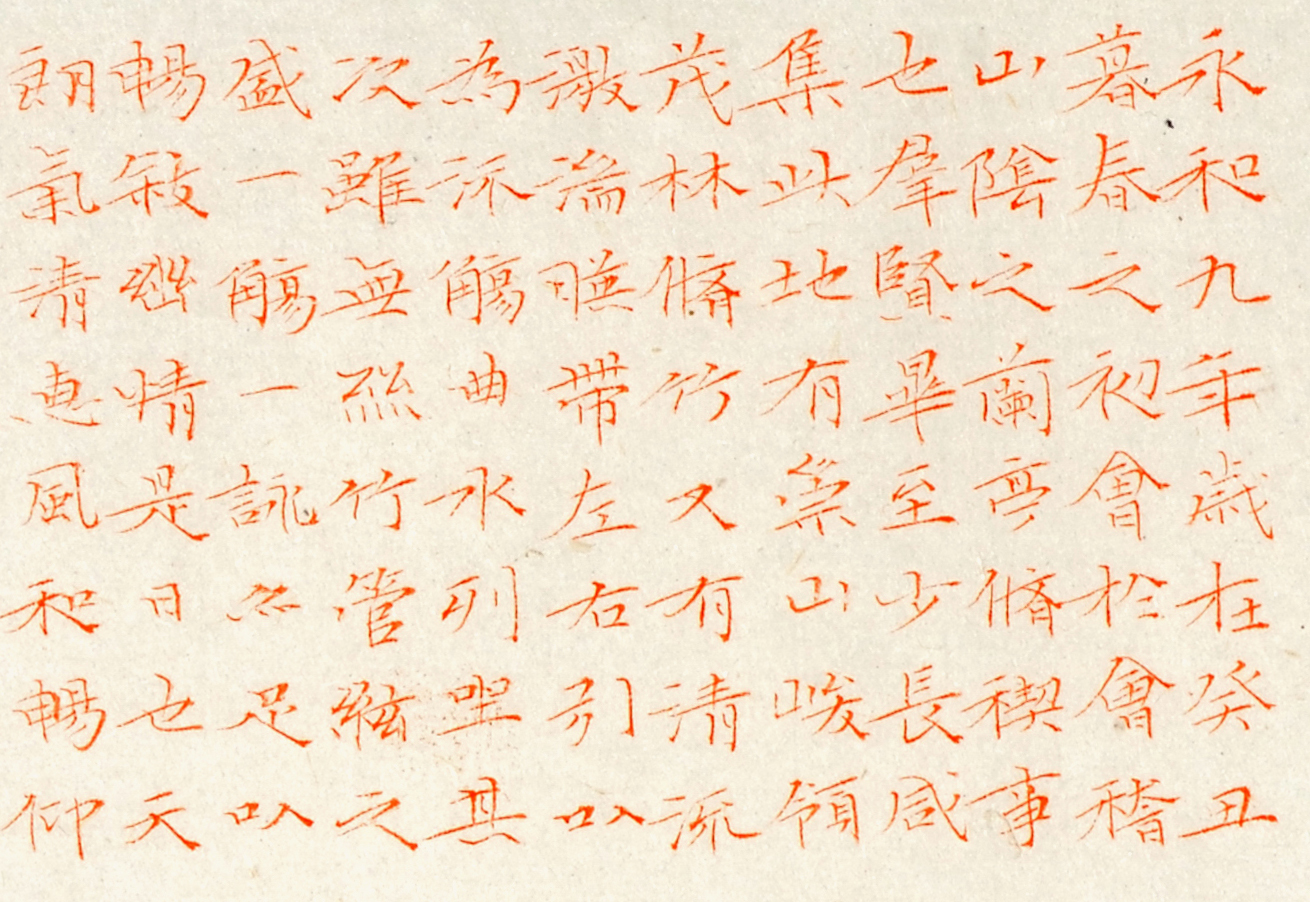 永和九年歲在癸丑
暮春之初會於會稽
山陰之蘭亭脩禊事
也羣賢畢至少長咸
集此地有崇山峻領
茂林脩竹又有清流
激湍暎帶左右引以
為流觴曲水列坐其
次雖無絲竹管絃之
盛一觴一詠亦足以
暢敘幽情是日也天
朗氣清惠風和暢仰